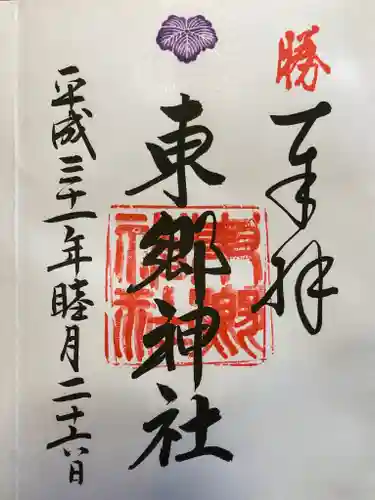 勝
奉拝
東郷神社
東郷神社
平成三十一年睦月二十六日